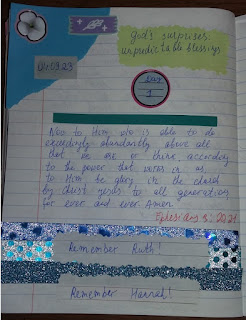 God's surprises
unpredictable blessings
04.03.23
DAY
1
Now to Him who is able to do
exceedingly abundantly above all
that we ask or think, according
to the power that works in us
to Him be glory in the church
by Christ Jesus to all generations
for ever and ever Amen
Ephesians 3:20,21
Remember Ruth!
Remember Hannah!